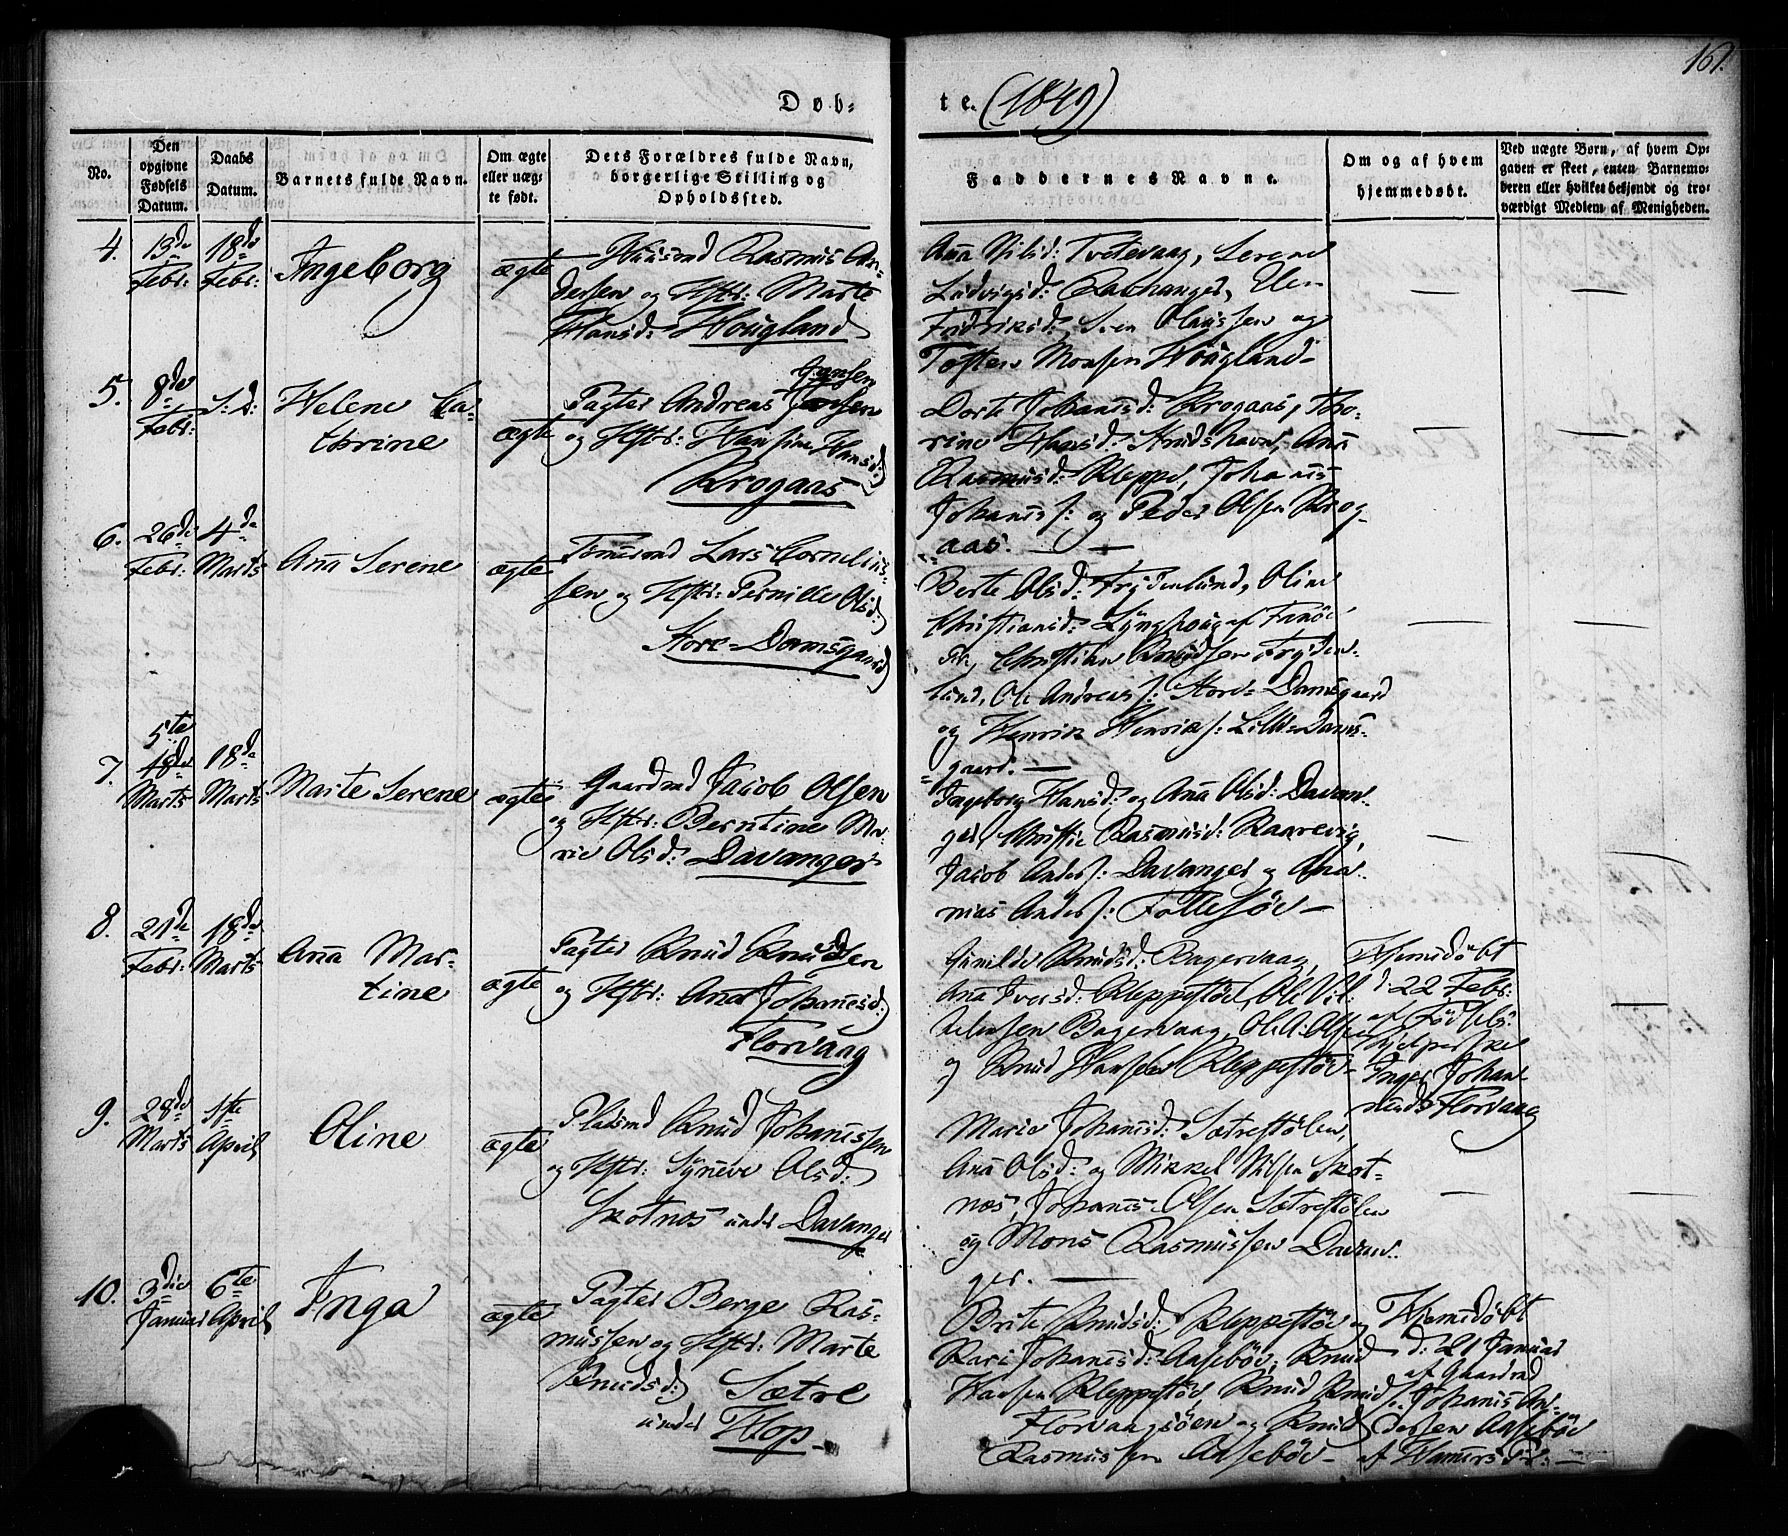 161.
Døb-
te. (1849)
No.
Den opgivne Fødsels Datum.
Daabs Datum.
Barnets fulde Navn.
Om ægte eller uægte født.
Dets Forældres fulde Navn, borgerlige Stilling og Opholdssted.
Faddernes Navne.
Om og af hvem hjemmedøbt.
Ved uægte Børn, af hvem Op-
gaven er skeet, enten Barnemo-
deren eller hvilket bekjendt og tro-
værdigt Medlem af Menigheden.
4.
13de Febr:
18de Febr:
Ingeborg
ægte
Huusmd Rasmus An-
dersen og Hstr: Marte
Hansd: Hougland
Aña Nilsd: Tvetevaag, Serene
Ludvigsd: Elen
Fredriksd: Sven Olaussen og
Tosten Monsen Hougland-
5.
8de Febr:
S: D:
Helene Ca-
thrine
ægte
Jansen
Pagter Andreas Jensen
og Hstr: Hansine Hansd:
Krogaas
Dorte Johañsd: Krogaas, Tho-
rine Hansd: Knudshavn, Aña
Rasmusd: Kleppe, Johañs
Johañs s: og Peder Olsen Krog-
aas. —
6.
26de Febr:
4de Marts
Aña Serene
ægte
Tomtemd Lars Cornelius-
sen og Hstr: Pernille Olsd:
Store-Damsgaard
Berte Olsd: Frydenlund, Oline
Christiansd: Lynghoug af Fanøe
Pr, Christian Knudsen Fryden-
lund, Ole Andreas s: Store-Damsgaard
og Henrik Henrik s: Lille-Dams-
gaard. —
7.
5te
18de Marts
18de Marts
Marte Serene
ægte
Gaardmd Jacob Olsen
og Hstr: Berntine Ma-
rie Olsd: Davanger
Ingeborg Hansd: og Aña Olsd: Davan-
ger, Christie Rasmusd: Raarevig,
Jacob Anders s: Davanger og Ana-
nias Anders s: Follesøe —
8.
21de Febr:
18de Marts
Aña Mar-
tine
ægte
Pagter Knud Knudsen
og Hstr: Ana Johañsd:
Florvaag
Gunilde Knudsd: Bagervaag,
Aña Iversd: Kleppestøe, Ole Vil-
helmsen Bagervaag, Ole A: Olsen
og Knud Hansen Kleppestøe-
Hjemdøbt
d: 22 Febr:
af Fødsels-
hjelperske
Inger Johan-
nesd: Florvaag
9.
28de Marts
1ste April
Oline
ægte
Pladsmd Knud Johañssen
og Hstr: Syneve Olsd:
Skotnes under Davanger
Marie Johañsd: Sætrestølen,
Aña Olsd: og Mikkel Nilsen Skot-
nes, Johañs Olsen Sætrestølen
og Mons Rasmussen Davan-
ger. —
10.
3die Januar
6te April
Inga
ægte
Pagter Berge Ras-
mussen og Hstr: Marte
Knudsd: Sætre
under Hop-
Brite Knudsd: Kleppestøe og
Kari Johañsd: Aasebøe, Knud
Hansen Kleppestøe, Knud Knuds:
Florvaagøen og Knud
Rasmussen Aasebøe-
Hjemdøbt
d: 21 Januar
af Gaardmd
Johañs An-
dersen Aasebøe
af Hamers Pr: —